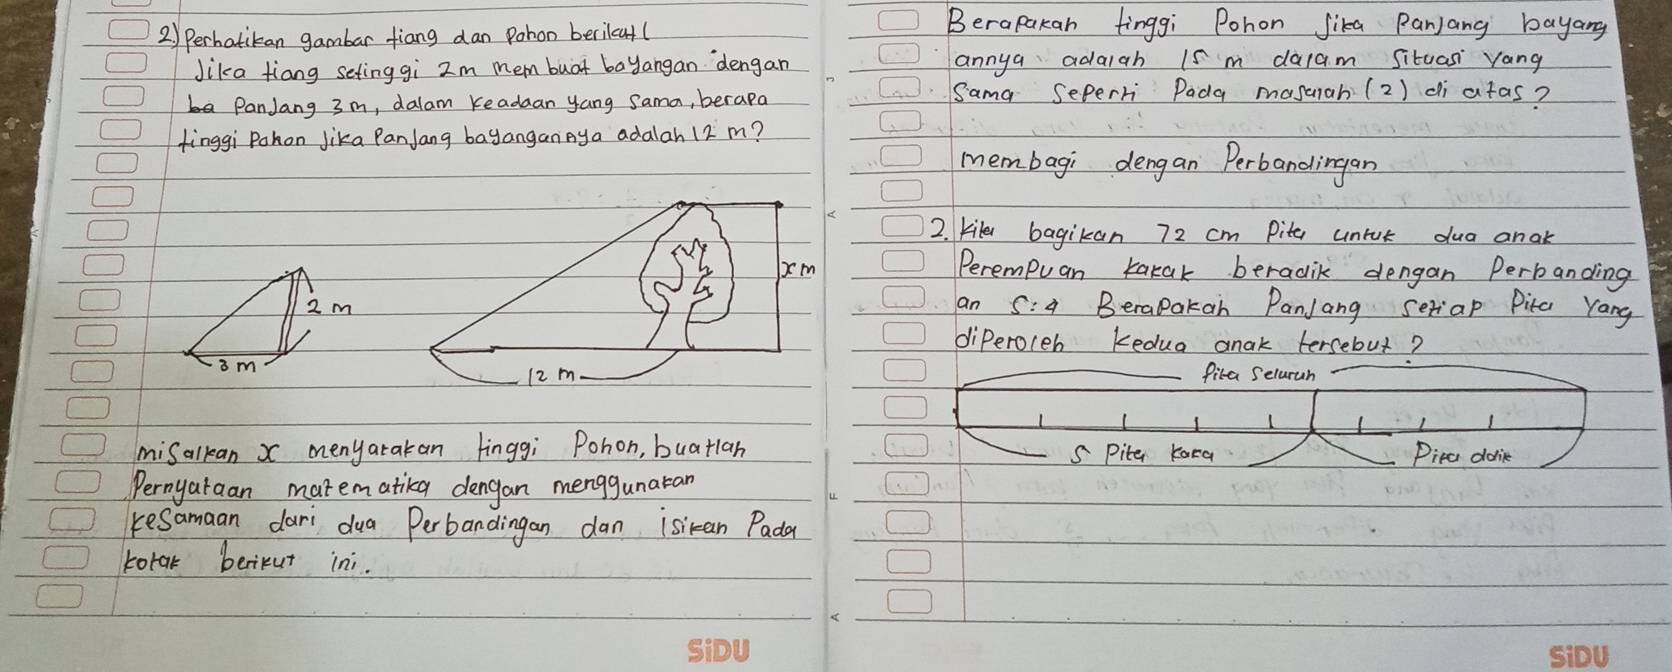 2) Perhatikan gambar tiang dan pohon berikut (
Jika tiang setinggi 2m membuat bayangan dengan
ba panjang 3 m, dalam keadaan yang sama, berapa
tinggi pohon jika panjang bayangannya adalah 12 m?
2 m
3 m
x m
12 m
misalkan x menyatakan tinggi Pohon, buatlah
Pernyataan matematika dengan menggunakan
kesamaan dari dua Perbandingan dan isikan Pada
kotak berikut ini.
SiDU
Berapakah tinggi Pohon Jika Panjang bayang
annya adalah 15 m dalam situasi yang
Sama Seperti Pada masalah (2) di atas?
membagi dengan Perbandingan
2. kita bagikan 72 cm Pita untuk dua anak
Perempuan kakak beradik dengan Perbanding
an 5:4 Berapakah Panjang setiap Pita Yang
diperoleh kedua anak tersebut?
Pita Seluruh
5 Pita kaka
Pita adik
SiDU